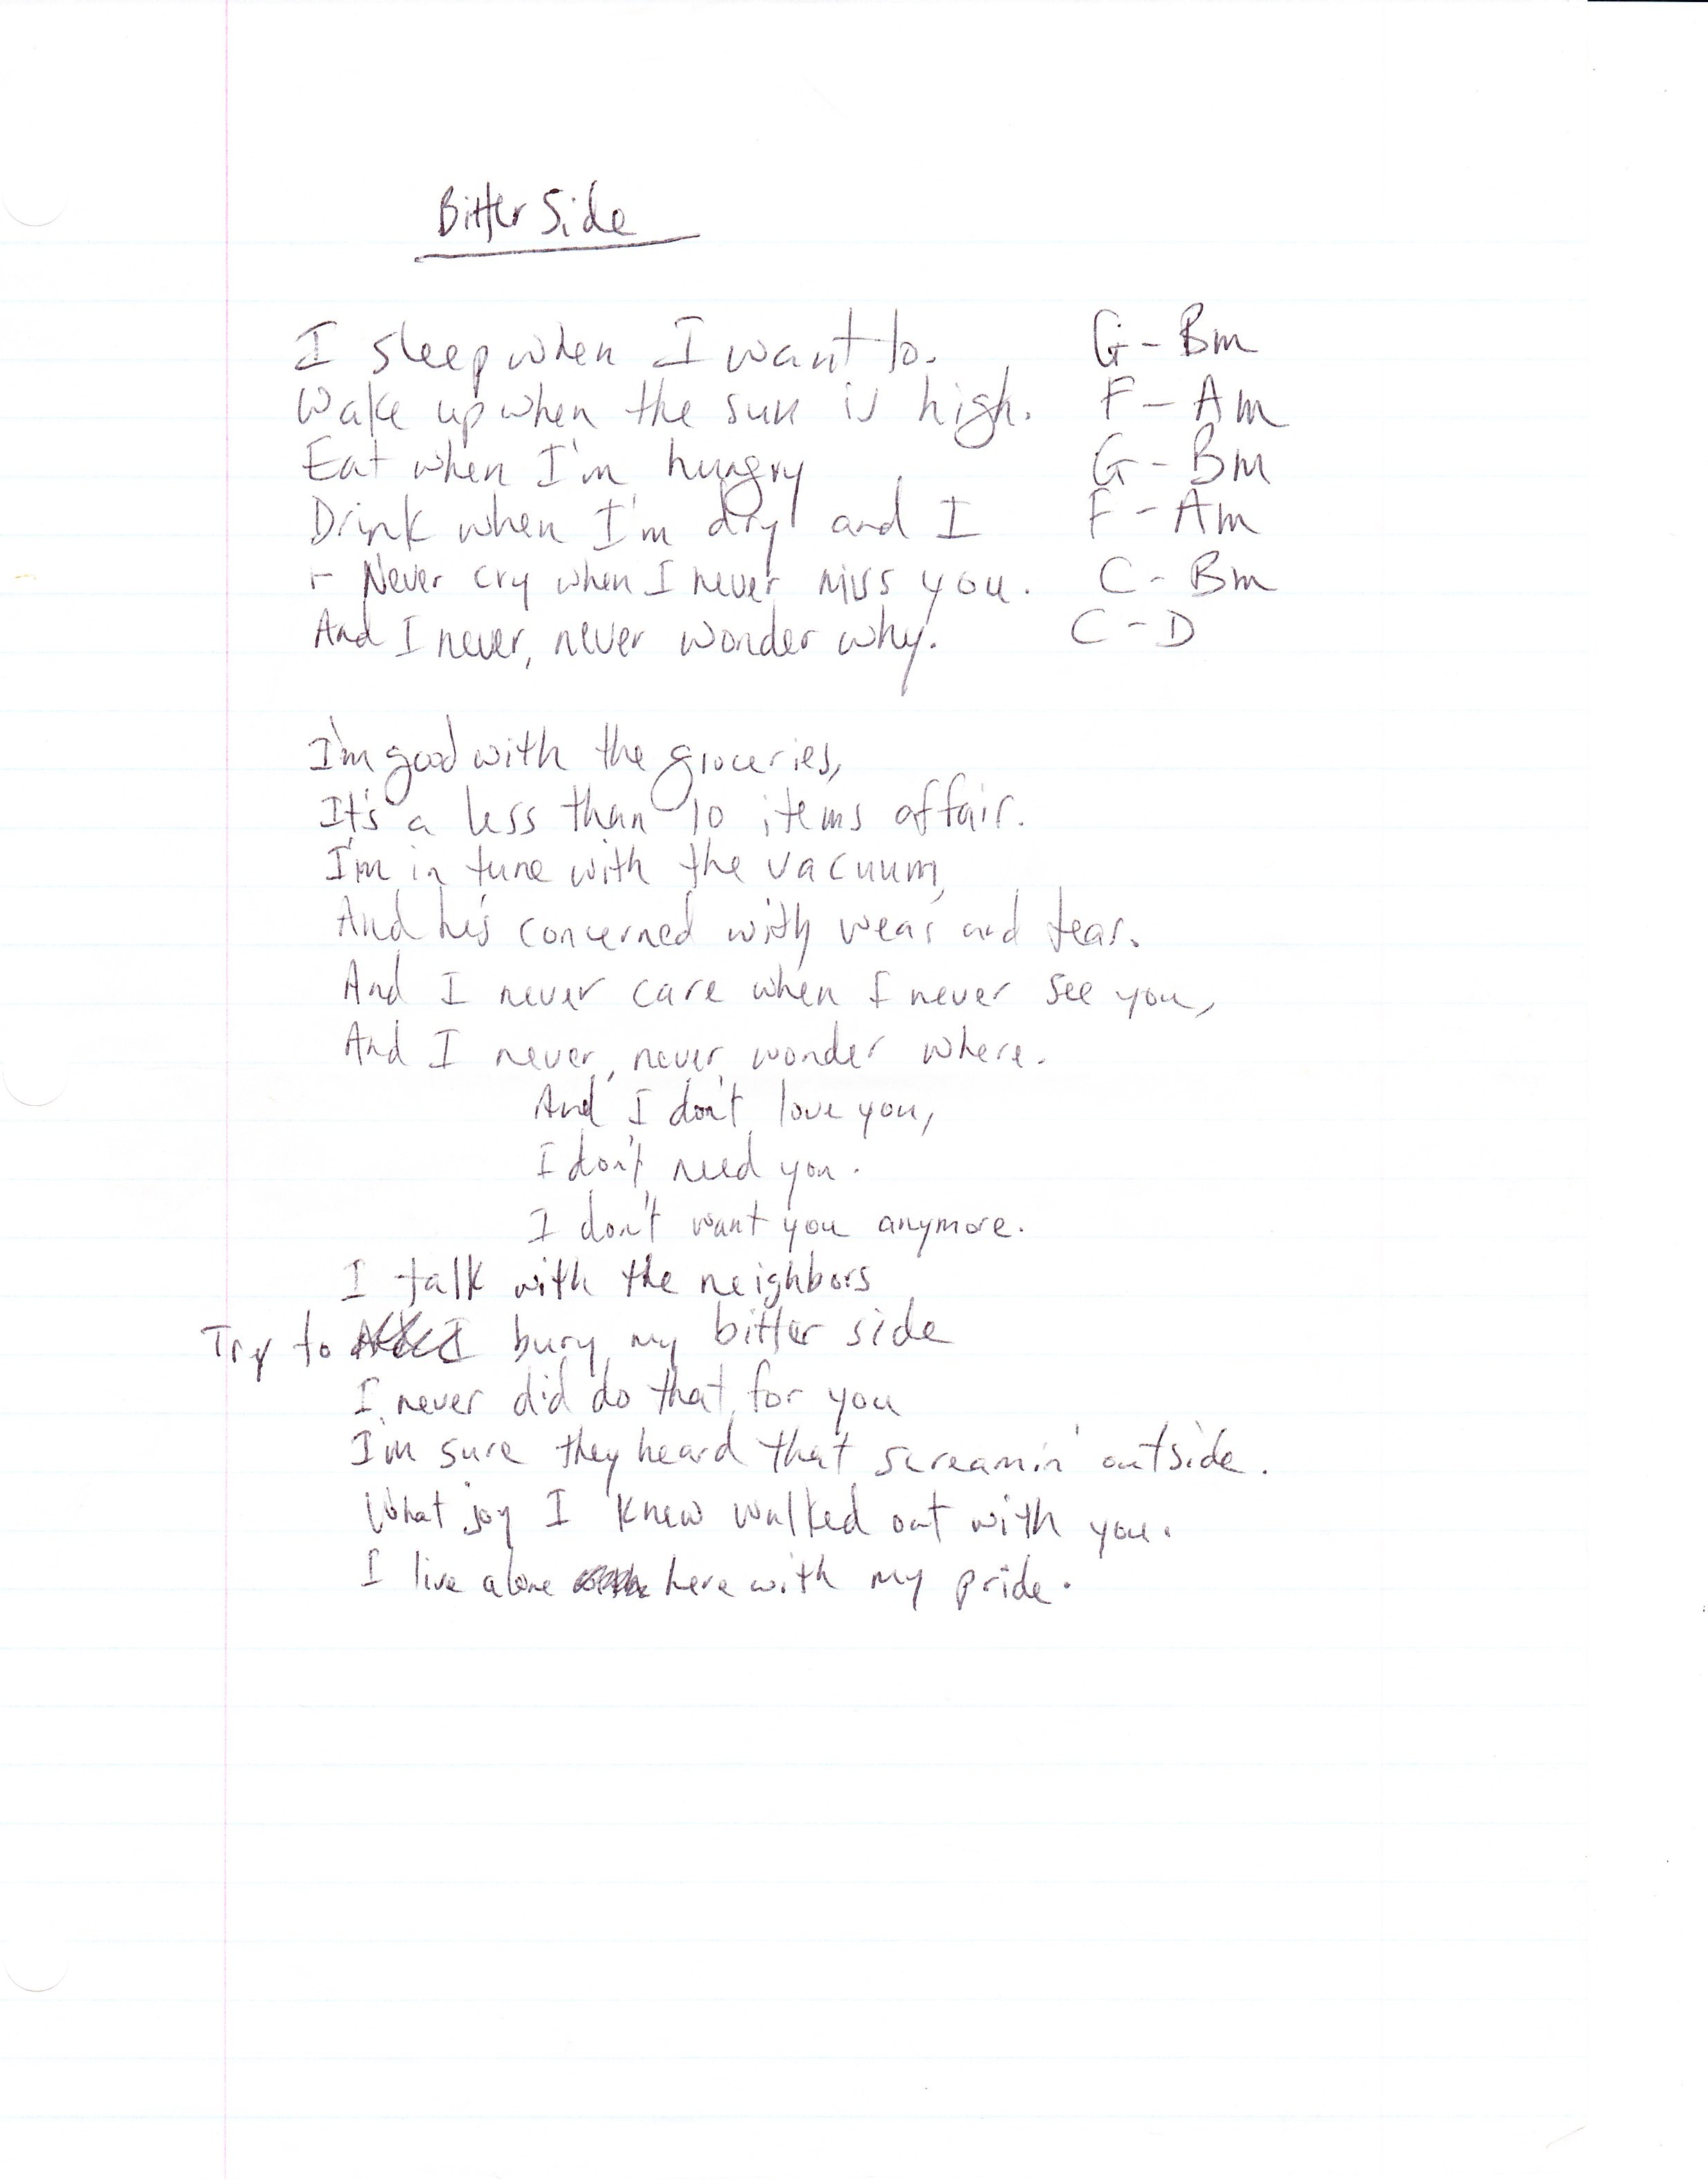 Bitter Side
I sleep when I want to. G - Bm
Wake up when the sun is high. F - Am
Eat when I'm hungry G - Bm
Drink when I'm dry and I F - Am
- Never cry when I never miss you. C - Bm
And I never, never wonder why. C - D
I'm good with the groceries,
It's a less than 10 items affair.
I'm in tune with the vacuum,
And he's concerned with wear and tear.
And I never care when I never see you,
And I never, never wonder where.
And I don't love you,
I don't need you.
I don't want you anymore.
I talk with the neighbors
Try to bury my bitter side
I never did do that for you
I'm sure they heard that screamin' outside.
What joy I knew walked out with you.
I live alone here with my pride.